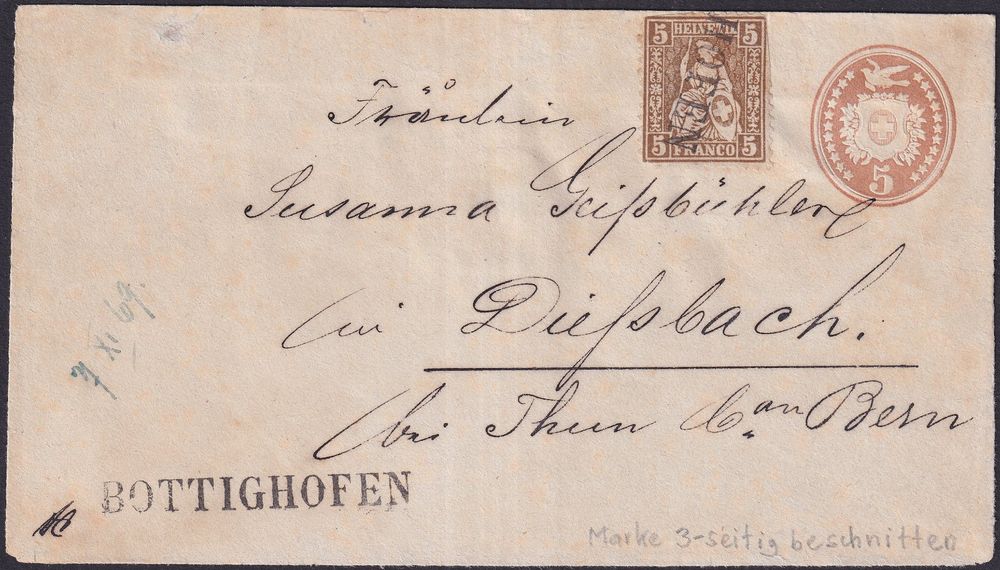 5 HELVETIA 5
5 FRANCO 5
HOFEN
5
Fräulein
Susanna Geißbühler
in Dießbach.
bei Thun Can Bern
7 XI 69.
BOTTIGHOFEN
Marke 3-seitig beschnitten